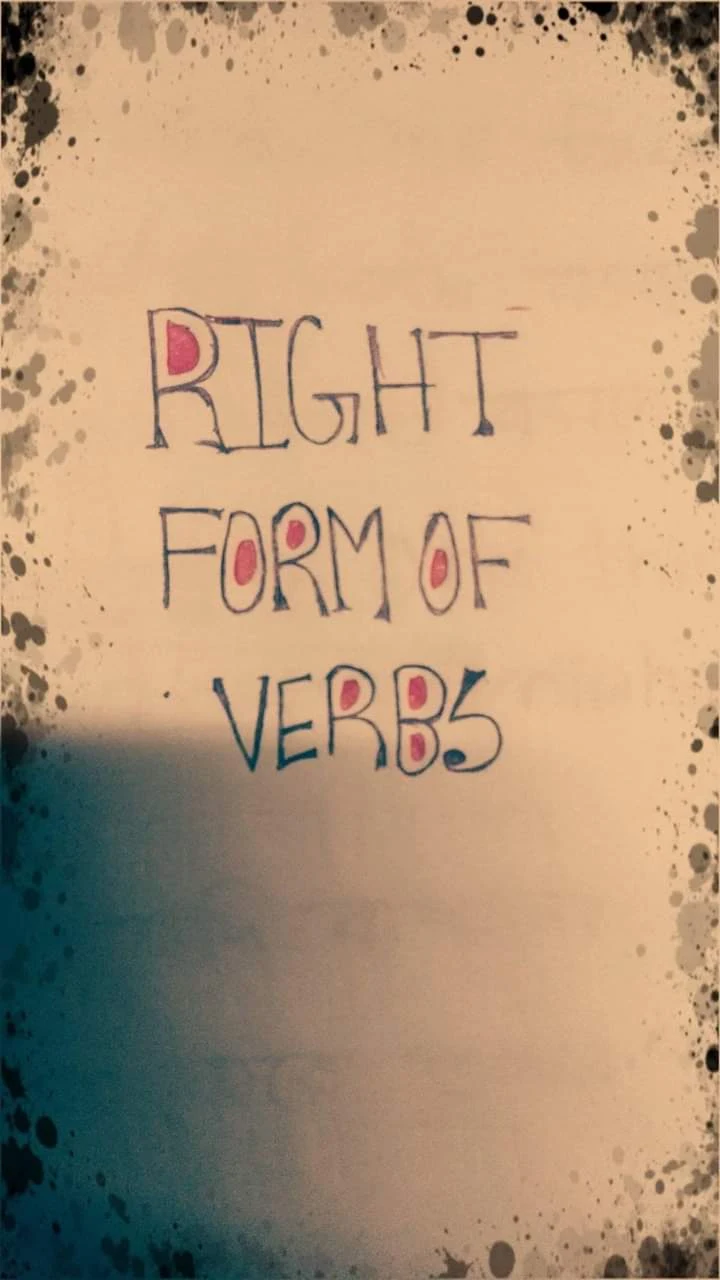 RIGHT
FORM OF
VERBS